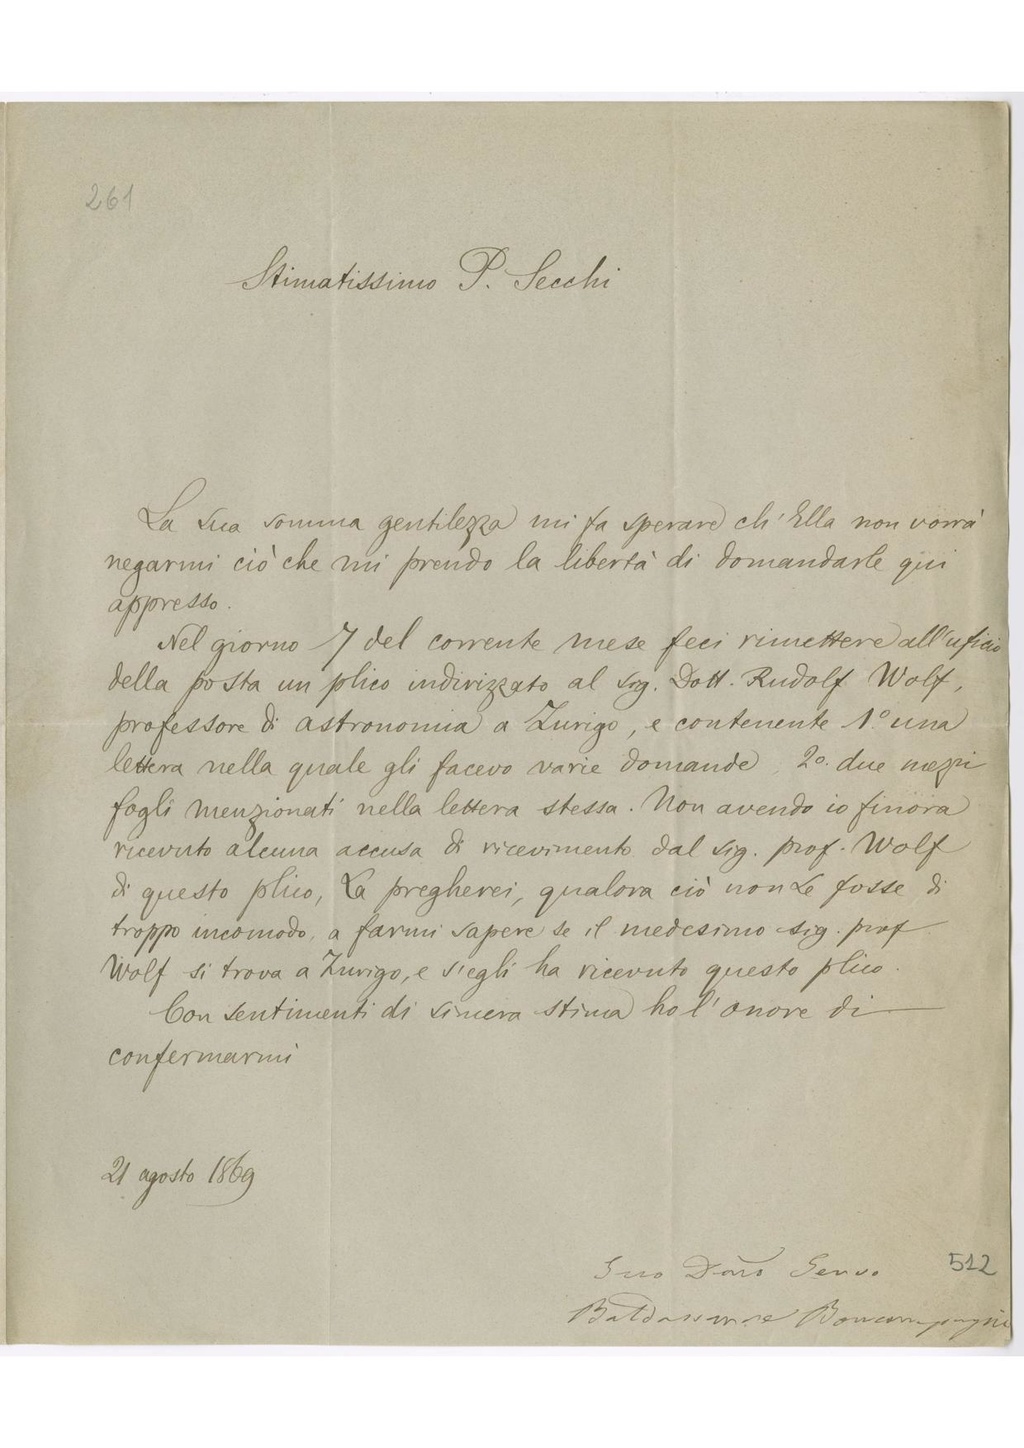 261
Stimatissimo P. Secchi
La sua somma gentilezza mi fa sperare ch'Ella non vorrà
negarmi ciò che mi prendo la libertà di domandarle qui
appresso.
Nel giorno 7 del corrente mese feci rimettere all'uficio
della posta un plico indirizzato al sig. Dott. Rudolf Wolf,
professore di astronomia a Zurigo, e contenente 1.° una
lettera nella quale gli facevo varie domande, 2.° due mezzi
fogli menzionati nella lettera stessa. Non avendo io finora
ricevuto alcuna accusa di ricevimento dal sig. prof. Wolf
di questo plico, La pregherei, qualora ciò non Le fosse di
troppo incomodo, a farmi sapere se il medesimo sig. prof
Wolf si trova a Zurigo, e s'egli ha ricevuto questo plico.
Con sentimenti di sincera stima ho l'onore di
confermarmi
21 agosto 1869
Suo Dmo Servo
512
Baldassarre Boncompagni